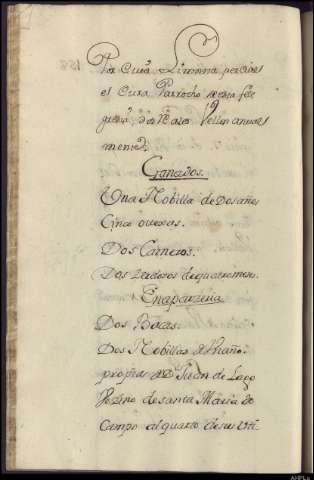 Por cuia Limosna percive
el Cura Parrocho de esta feli
gresia dos R.s de Vellon anual
mente.
Ganados.
Una Nobilla de dos años
Cinco ovexas.
Dos Carneros.
Dos Zerdos de quatro meses.
En aparzeria
Dos Bacas.
Dos Nobillas de un año.
propias de Juan de Lago
Vezino de santa Maria do
Campo al quarto de su uti